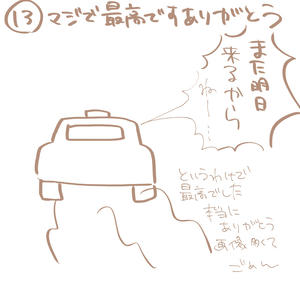 ⑬マジで最高ですありがとう
また明日
来るから
ねー…
というわけで
最高でした
本当に
ありがとう
画像多くて
ごめん